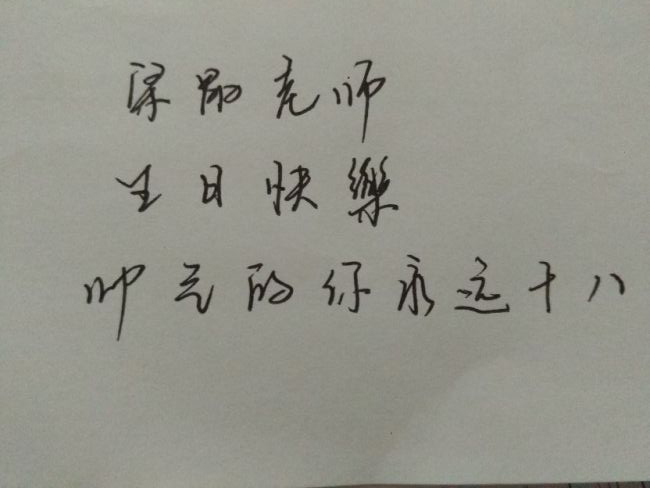 梁勋老师
生日快樂
帅气的你永远十八